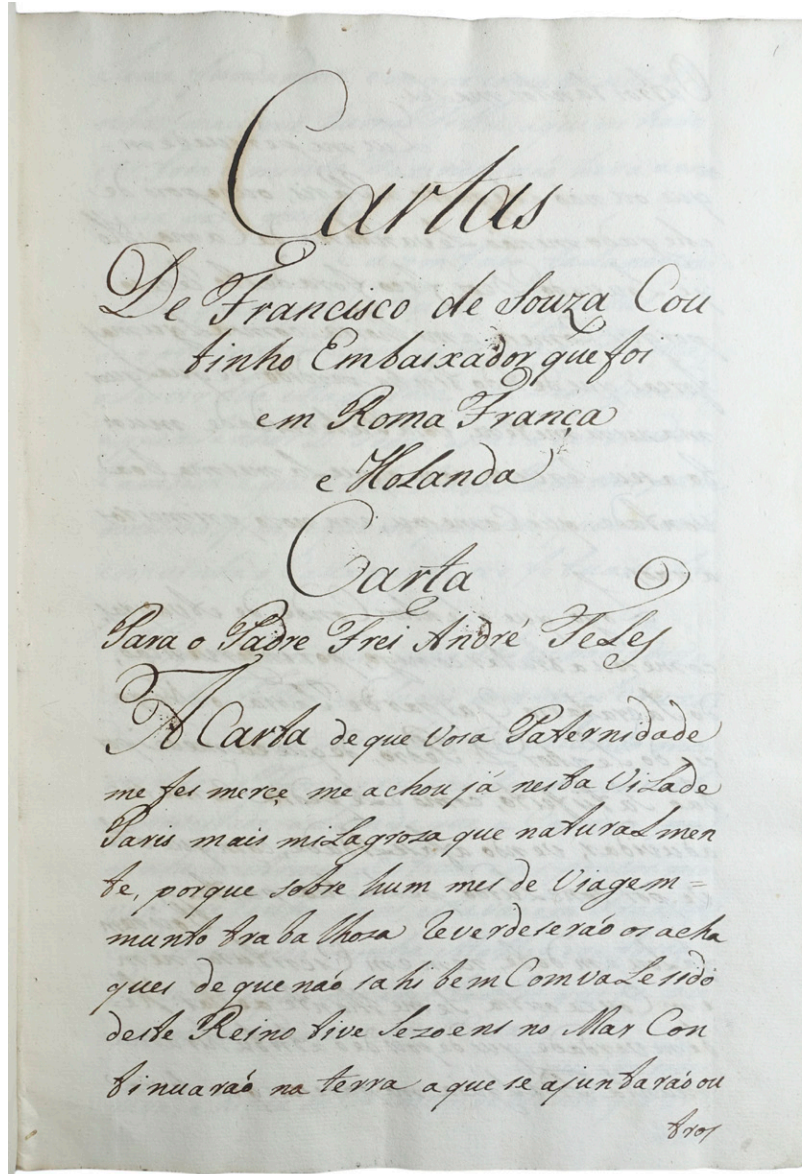 Cartas
De Francisco de Souza Cou
tinho Embaixador que foi
em Roma França
e Holanda
Carta
Para o Padre Frei André Teles
A Carta de que Vosa Paternidade
me fes merçe me achou já nesta Vila de
Paris mais milagroza que natural men
te, porque sobre hum mes de Viagem=
munto trabalhoza reverdeseráo os acha
ques de que náo sahi bem Comvalesido
deste Reino tive sezoens no Mar Con
tinuaráo na terra a que se ajuntaráo ou
tros